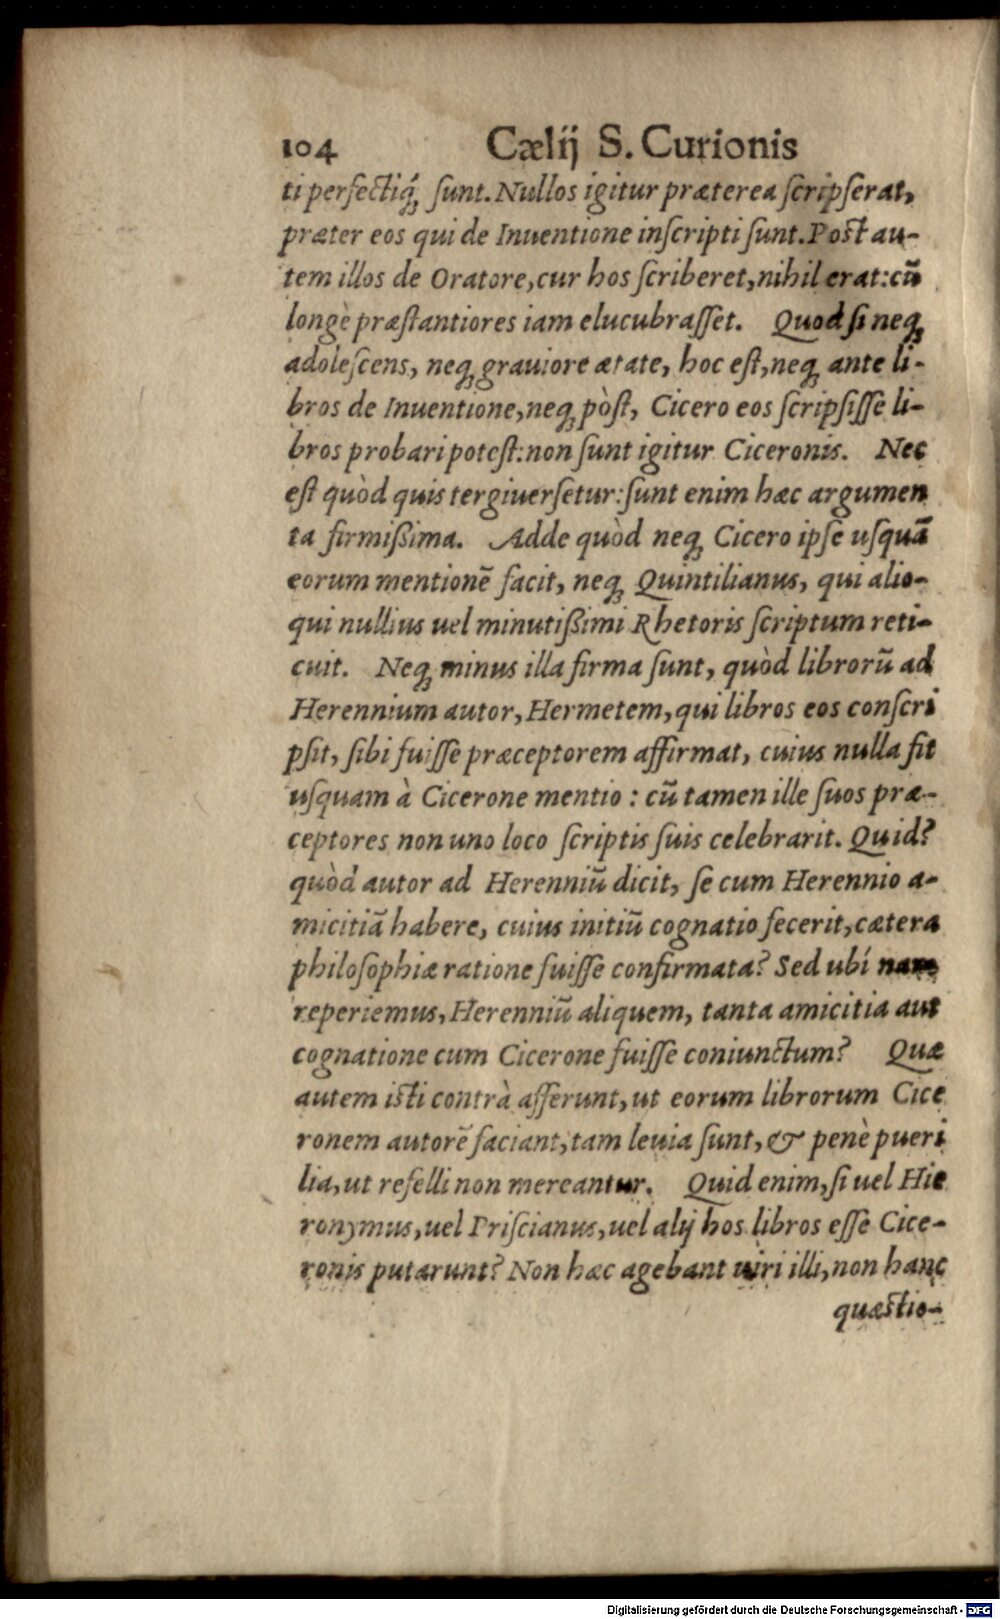 104 Cælij S. Curionis
ti perfectiq́; ſunt. Nullos igitur præterea ſcripſerat,
præter eos qui de Inuentione inſcripti ſunt. Post au-
tem illos de Oratore, cur hos ſcriberet, nihil erat: cũ
longè præſtantiores iam elucubraſſet. Quod ſi neq;
adoleſcens, neq; grauiore ætate, hoc eſt, neq; ante li-
bros de Inuentione, neq; pòſt, Cicero eos ſcripſiſſe li-
bros probari poteſt: non ſunt igitur Ciceronis. Nec
eſt quòd quis tergiuerſetur: ſunt enim hæc argumen
ta firmißima. Adde quòd neq; Cicero ipſe uſquã
eorum mentionẽ facit, neq; Quintilianus, qui alio-
qui nullius uel minutißimi Rhetoris ſcriptum reti-
cuit. Neq; minus illa firma ſunt, quòd librorũ ad
Herennium autor, Hermetem, qui libros eos conſcri
pſit, ſibi fuiſſe præceptorem affirmat, cuius nulla fit
uſquam à Cicerone mentio: cũ tamen ille ſuos præ-
ceptores non uno loco ſcriptis ſuis celebrarit. Quid?
quòd autor ad Herenniũ dicit, ſe cum Herennio a-
micitiã habere, cuius initiũ cognatio fecerit, cætera
philoſophiæ ratione fuiſſe confirmata? Sed ubí nam
reperiemus, Herenniũ aliquem, tanta amicitia aut
cognatione cum Cicerone fuiſſe coniunctum? Quæ
autem isti contrà afferunt, ut eorum librorum Cice
ronem autorẽ faciant, tam leuia ſunt, & penè pueri
lia, ut refelli non mereantur. Quid enim, ſi uel Hie
ronymus, uel Priſcianus, uel alij hos libros eſſe Cice-
ronis putarunt? Non hæc agebant uiri illi, non hanc
quæstio-
Digitalisierung gefördert durch die Deutsche Forschungsgemeinschaft - DFG